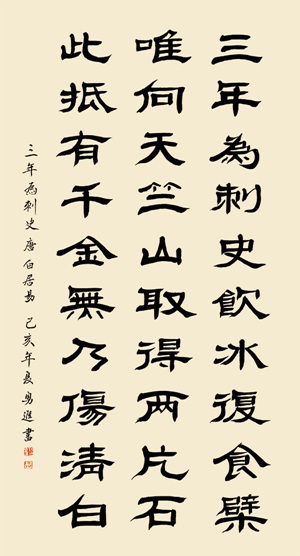 三年為刺史飲冰復食檗
唯向天竺山取得两片石
此抵有千金無乃傷清白
三年為刺史 唐 白居易 己亥年夏 勇進書